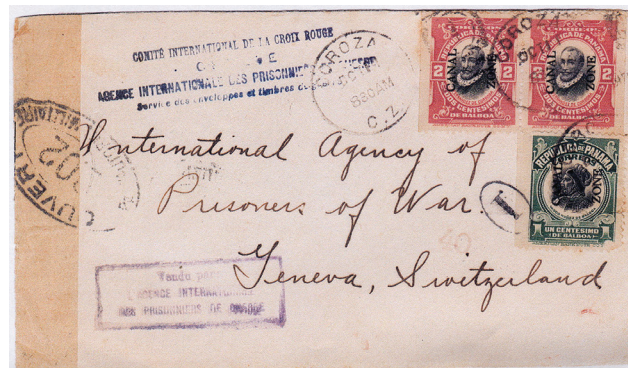 COMITÉ INTERNATIONAL DE LA CROIX ROUGE
AGENCE INTERNATIONALE DES PRISONNIERS
Service des enveloppes et timbres
COROZA
830AM
C.Z.
COROZA
REPUBLICA DE PANAMA
CANAL ZONE
2 2
DOS CENTESIMOS
DE BALBOA
REPUBLICA DE PANAMA
CANAL ZONE
2 2
DOS CENTESIMOS
DE BALBOA
REPUBLICA DE PANAMA
CORREOS
ZONE
1 1
UN CENTESIMO
DE BALBOA
OUVERT
202
International Agency of
Prisoners of War.
1
40
Geneva, Switzerland
Vendu par
L'AGENCE INTERNATIONALE
DES PRISONNIERS DE GUERRE